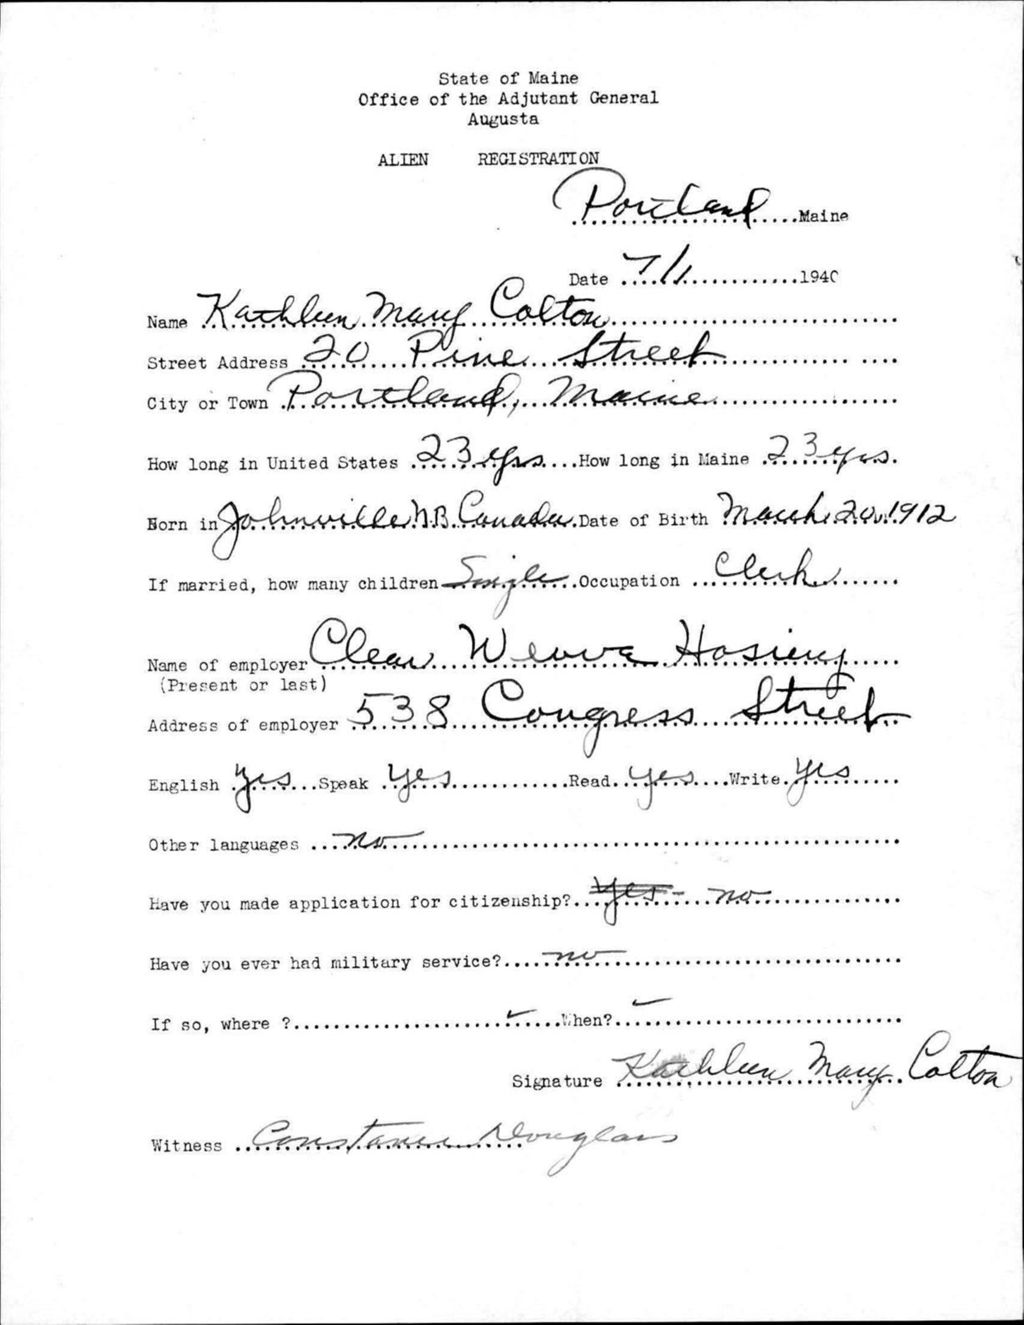 State of Maine
Office of the Adjutant General
Augusta
ALIEN REGISTRATION
Portland Maine
Date 7/1 1940
Name Kathleen Mary Colton
Street Address 20 Pine Street
City or Town Portland, Maine
How long in United States 23 yrs How long in Maine 23 yrs.
Born in Johnville N.B. Canada Date of Birth March 20, 1912
If married, how many children Single Occupation Clerk
Name of employer Clear Hosiery
(Present or last)
Address of employer 538 Congress Street
English Yes Speak Yes Read Yes Write Yes
Other languages no
Have you made application for citizenship? Yes - no
Have you ever had military service? no
If so, where ? ✓ When? ✓
Signature Kathleen Mary Colton
Witness Constance Douglass